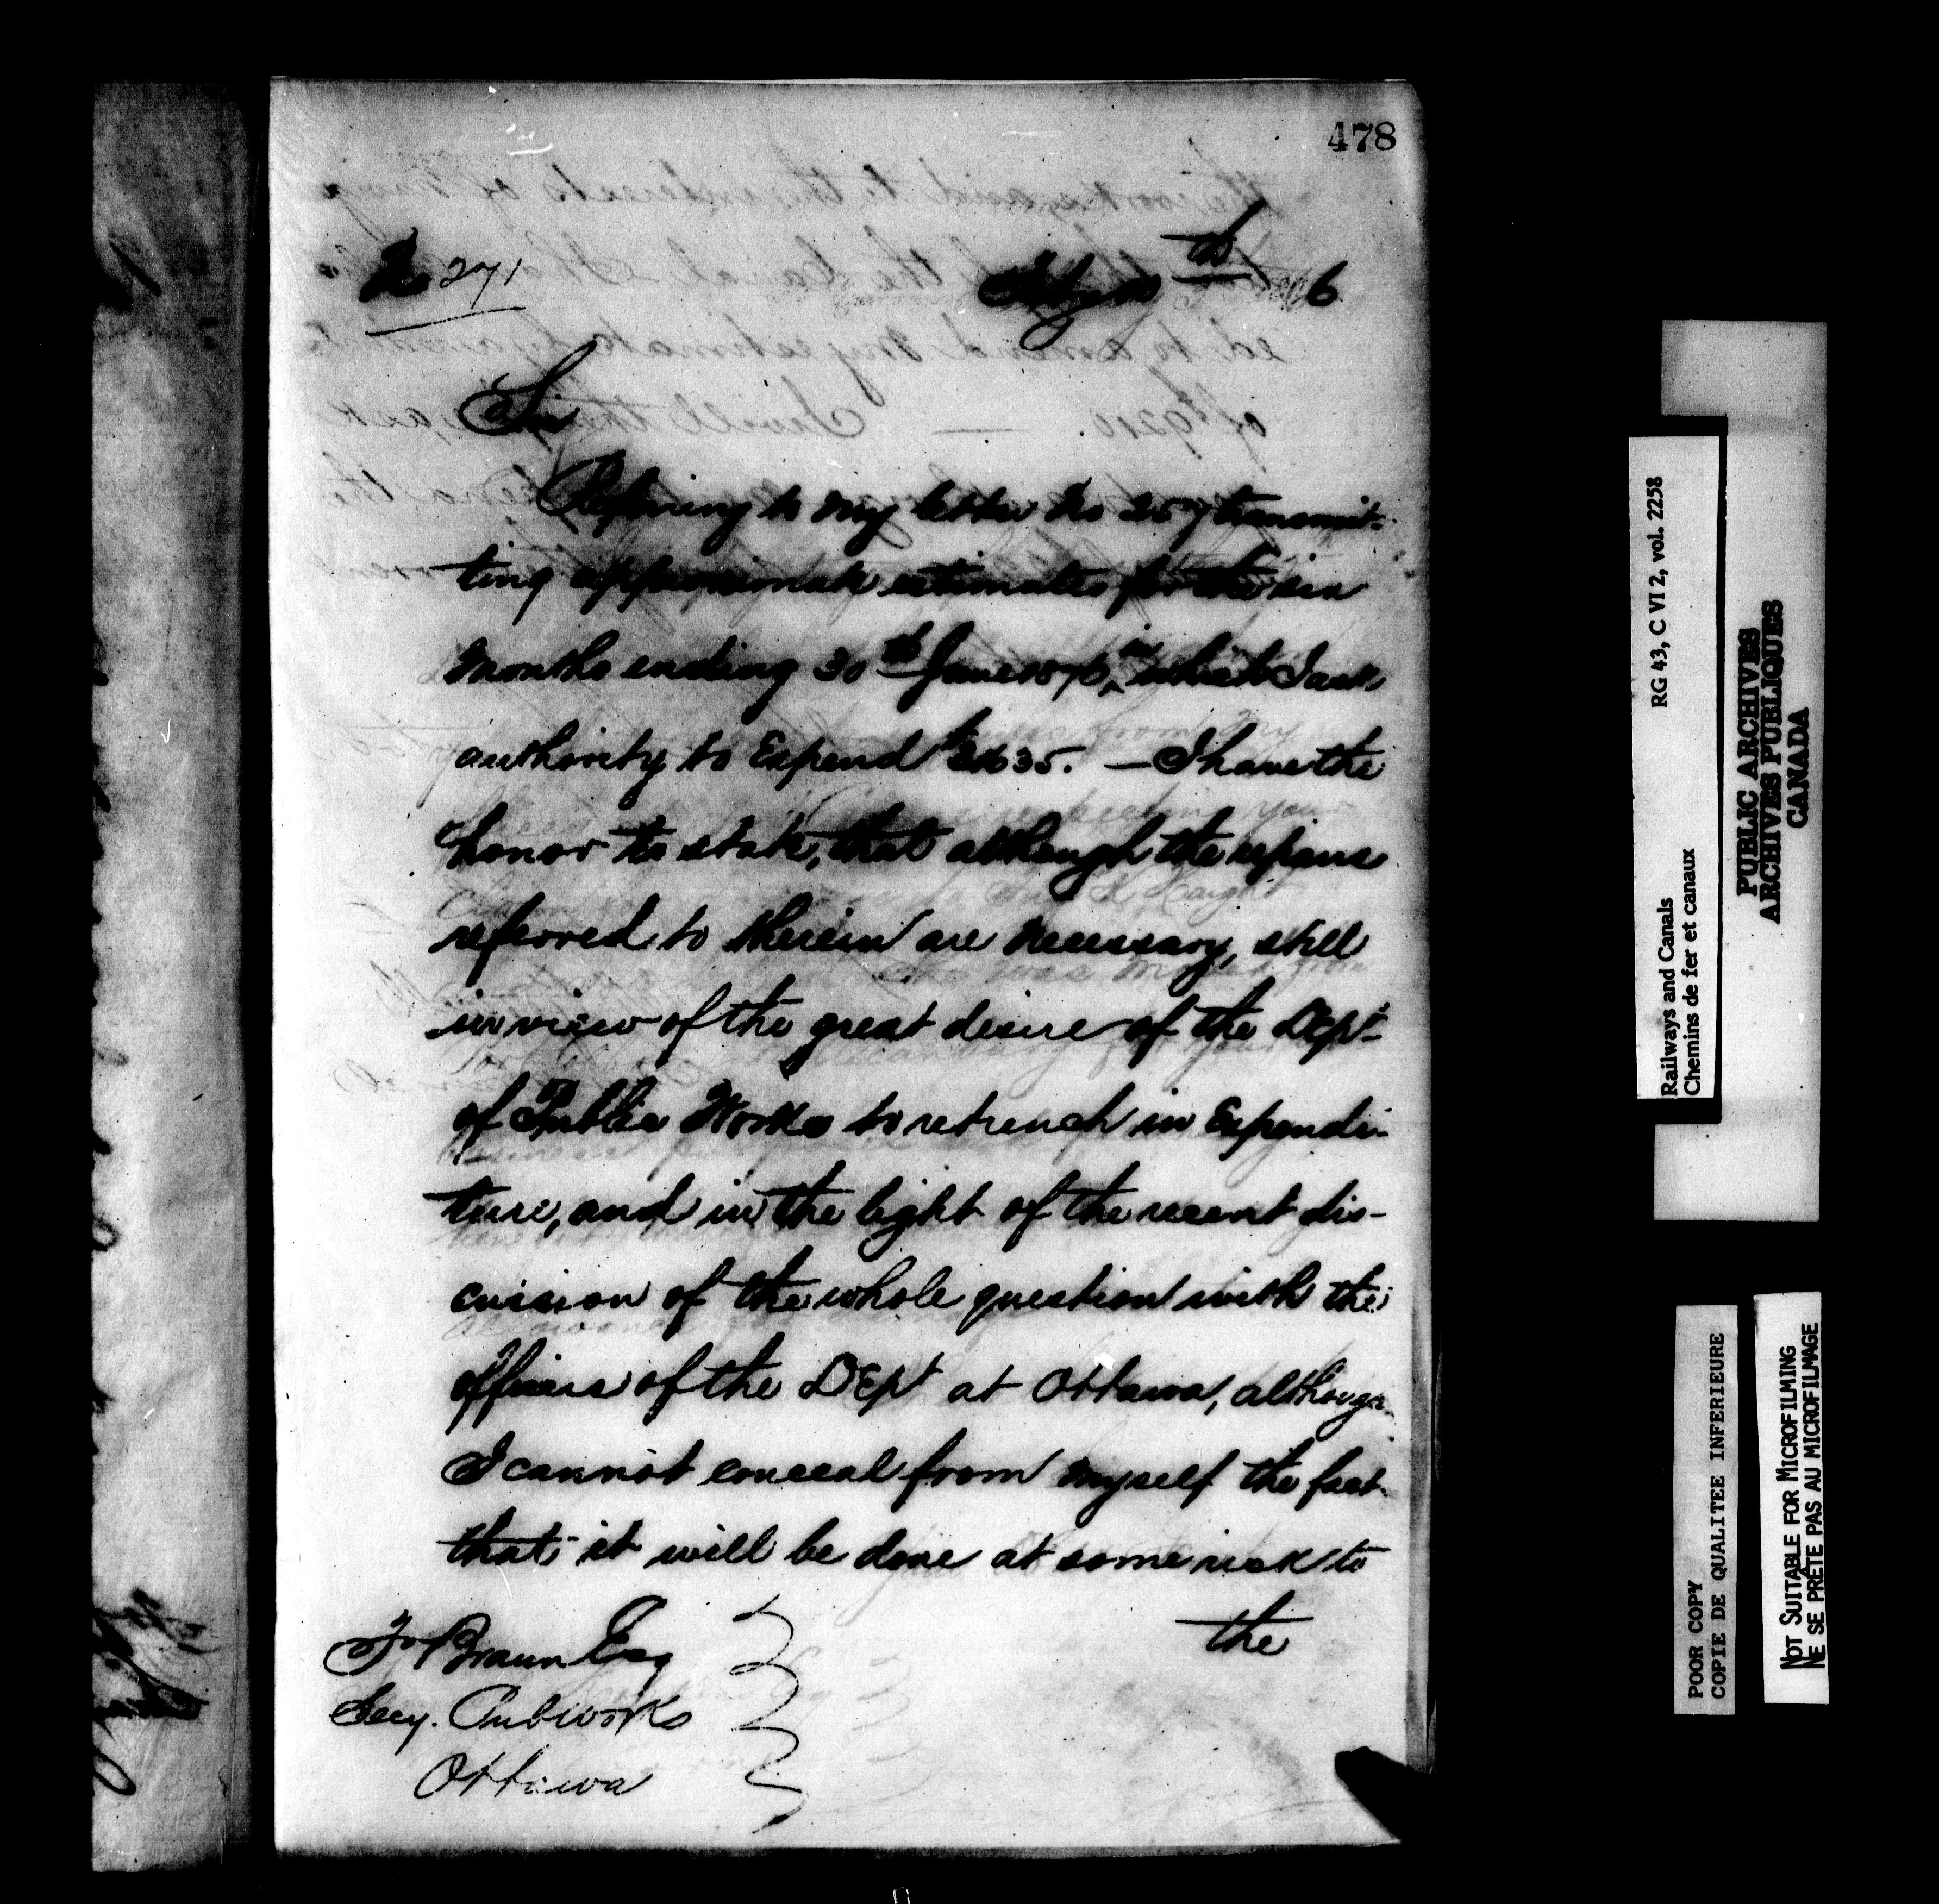 478
No 271
Feby th 6
Sir
Referring to my letter No 257 transmit-
ting approximate estimates for the six
months ending 30th June 1876, in which I ask
authority to Expend $ 35. — I have the
honor to state, that although the repairs
referred to therein are necessary, still
in view of the great desire of the Dept
of Public Works to retrench in Expendi-
ture, and in the light of the recent dis-
cussion of the whole question with the
officers of the Dept at Ottawa, although
I cannot conceal from myself the fact
that it will be done at some risk to
the
F Braun Esq
Secy. Pub Works
Ottawa
Railways and Canals
Chemins de fer et canaux
RG 43, C VI 2, vol. 2258
PUBLIC ARCHIVES
ARCHIVES PUBLIQUES
CANADA
POOR COPY
COPIE DE QUALITEE INFERIEURE
NOT SUITABLE FOR MICROFILMING
NE SE PRÊTE PAS AU MICROFILMAGE